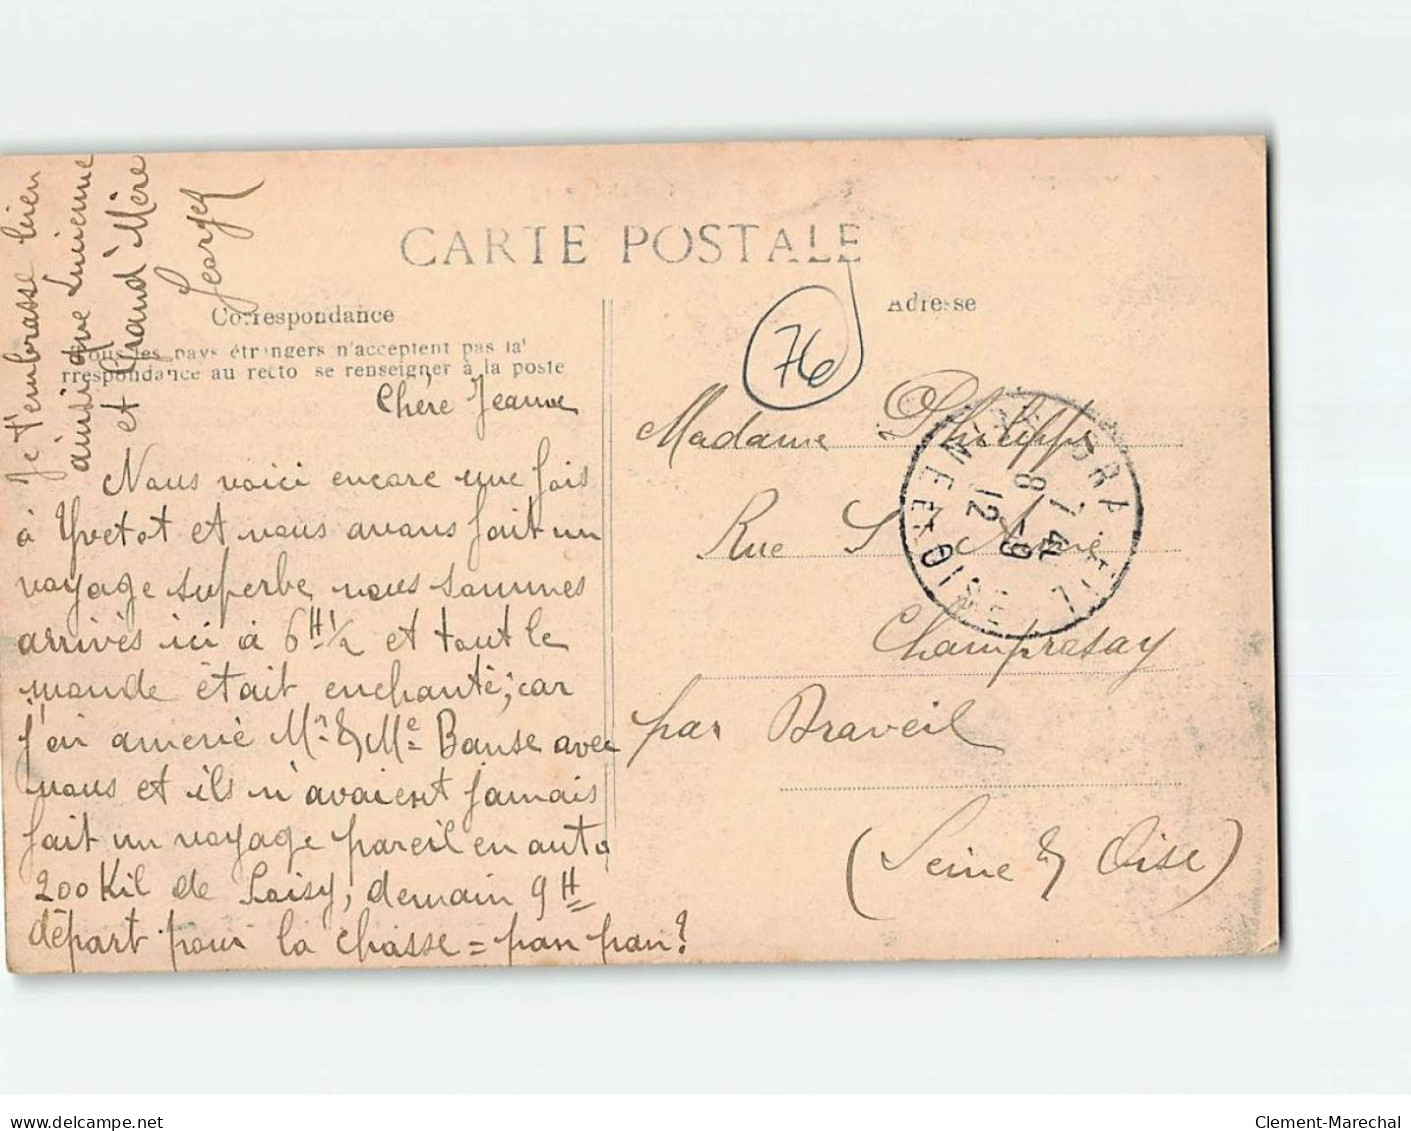 CARTE POSTALE
Correspondance
Tous les pays étrangers n'acceptent pas la
rrespondance au recto se renseigner à la poste
Chère Jeanne
Nous voici encore une fois
à Yvetot et nous avons fait un
voyage superbe, nous sommes
arrivés ici à 6H ½ et tout le
monde était enchanté; car
j'ai amené Mr & Me Banse avec
nous et ils n'avaient jamais
fait un voyage pareil en auto
200 Kil de Loisy, demain 9H
départ pour la chasse = pan pan!
Je t'embrasse bien
ainsi que Lucienne
et Grand'Mère
Georges
Adresse
76
Madame Philippe
Rue Ste Anne
Champrosay
par Draveil
(Seine & Oise)
7 4
8 - 9
12
SEINE-ET-OISE
delcampe.net
Clement-Marechal